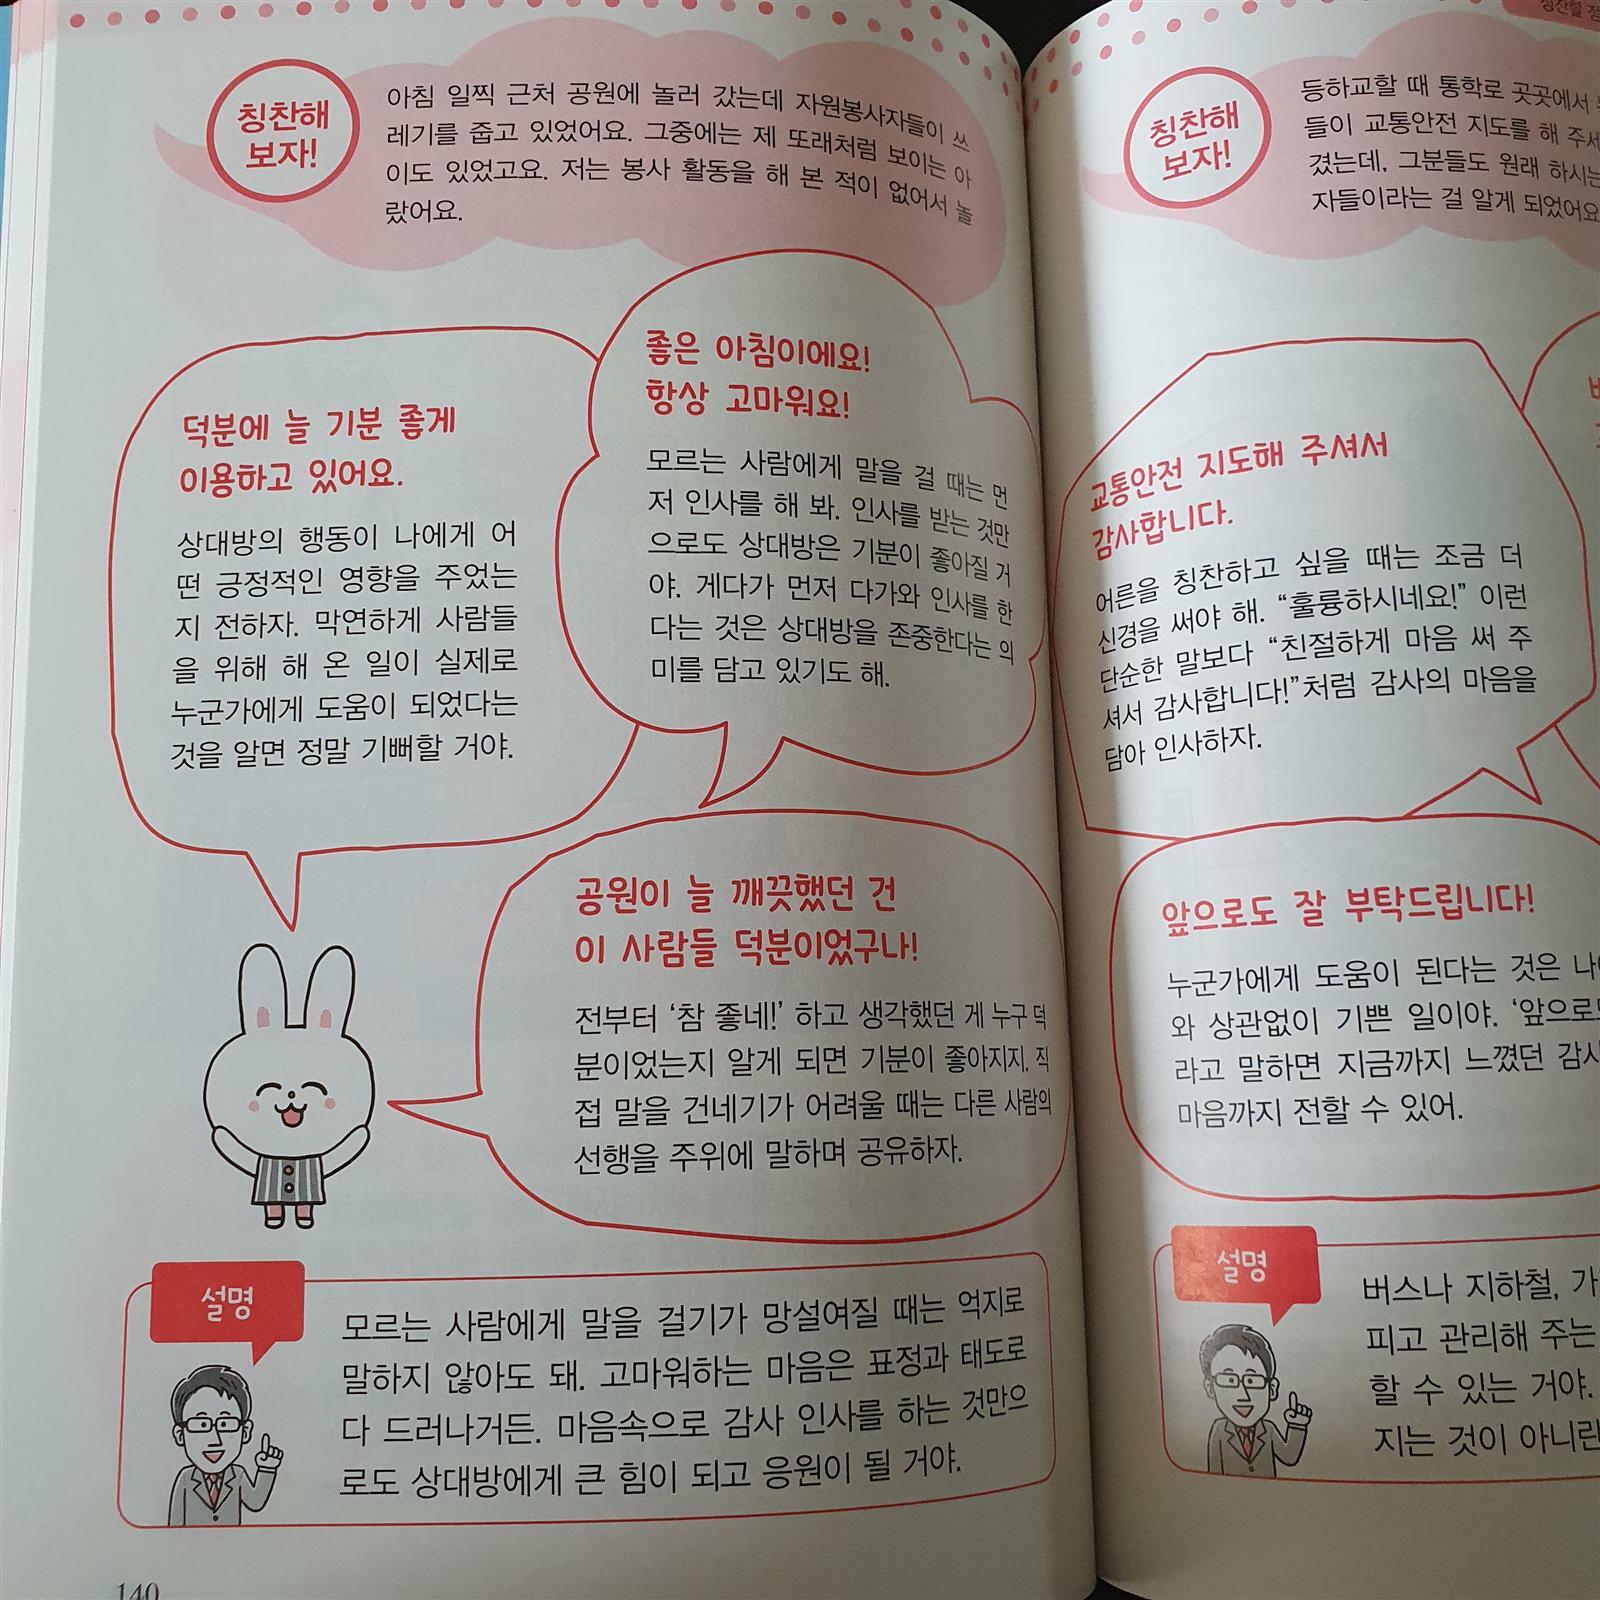 칭찬해
보자!
아침 일찍 근처 공원에 놀러 갔는데 자원봉사자들이 쓰
레기를 줍고 있었어요. 그중에는 제 또래처럼 보이는 아
이도 있었고요. 저는 봉사 활동을 해 본 적이 없어서 놀
랐어요.
덕분에 늘 기분 좋게
이용하고 있어요.
상대방의 행동이 나에게 어
떤 긍정적인 영향을 주었는
지 전하자. 막연하게 사람들
을 위해 해 온 일이 실제로
누군가에게 도움이 되었다는
것을 알면 정말 기뻐할 거야.
좋은 아침이에요!
항상 고마워요!
모르는 사람에게 말을 걸 때는 먼
저 인사를 해 봐. 인사를 받는 것만
으로도 상대방은 기분이 좋아질 거
야. 게다가 먼저 다가와 인사를 한
다는 것은 상대방을 존중한다는 의
미를 담고 있기도 해.
공원이 늘 깨끗했던 건
이 사람들 덕분이었구나!
전부터 ‘참 좋네!’ 하고 생각했던 게 누구 덕
분이었는지 알게 되면 기분이 좋아지지. 직
접 말을 건네기가 어려울 때는 다른 사람의
선행을 주위에 말하며 공유하자.
설명
모르는 사람에게 말을 걸기가 망설여질 때는 억지로
말하지 않아도 돼. 고마워하는 마음은 표정과 태도로
다 드러나거든. 마음속으로 감사 인사를 하는 것만으
로도 상대방에게 큰 힘이 되고 응원이 될 거야.
140
칭찬할
칭찬해
보자!
등하교할 때 통학로 곳곳에서
들이 교통안전 지도를 해 주세
겼는데, 그분들도 원래 하시는
자들이라는 걸 알게 되었어요
교통안전 지도해 주셔서
감사합니다.
어른을 칭찬하고 싶을 때는 조금 더
신경을 써야 해. “훌륭하시네요!” 이런
단순한 말보다 “친절하게 마음 써 주
셔서 감사합니다!”처럼 감사의 마음을
담아 인사하자.
앞으로도 잘 부탁드립니다!
누군가에게 도움이 된다는 것은 나이
와 상관없이 기쁜 일이야. ‘앞으로도
라고 말하면 지금까지 느꼈던 감사
마음까지 전할 수 있어.
설명
버스나 지하철, 가
피고 관리해 주는
할 수 있는 거야.
지는 것이 아니란